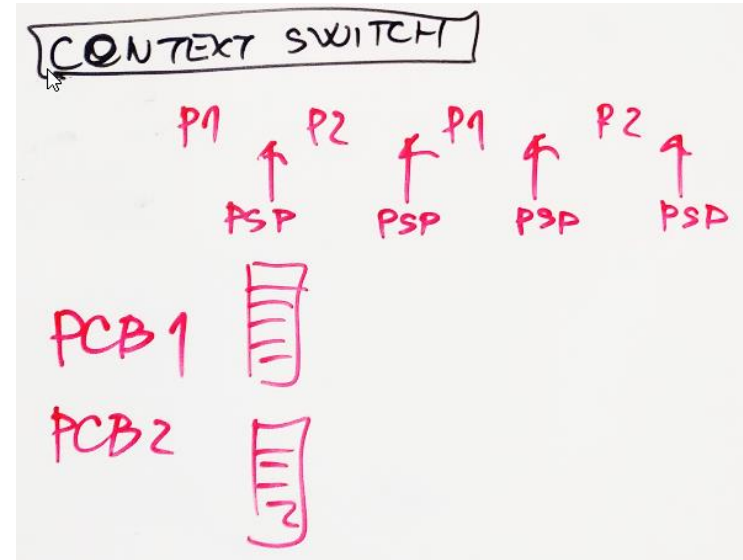 CONTEXT SWITCH
P1 P2 P1 P2
PSP PSP PSP PSP
PCB 1
PCB2